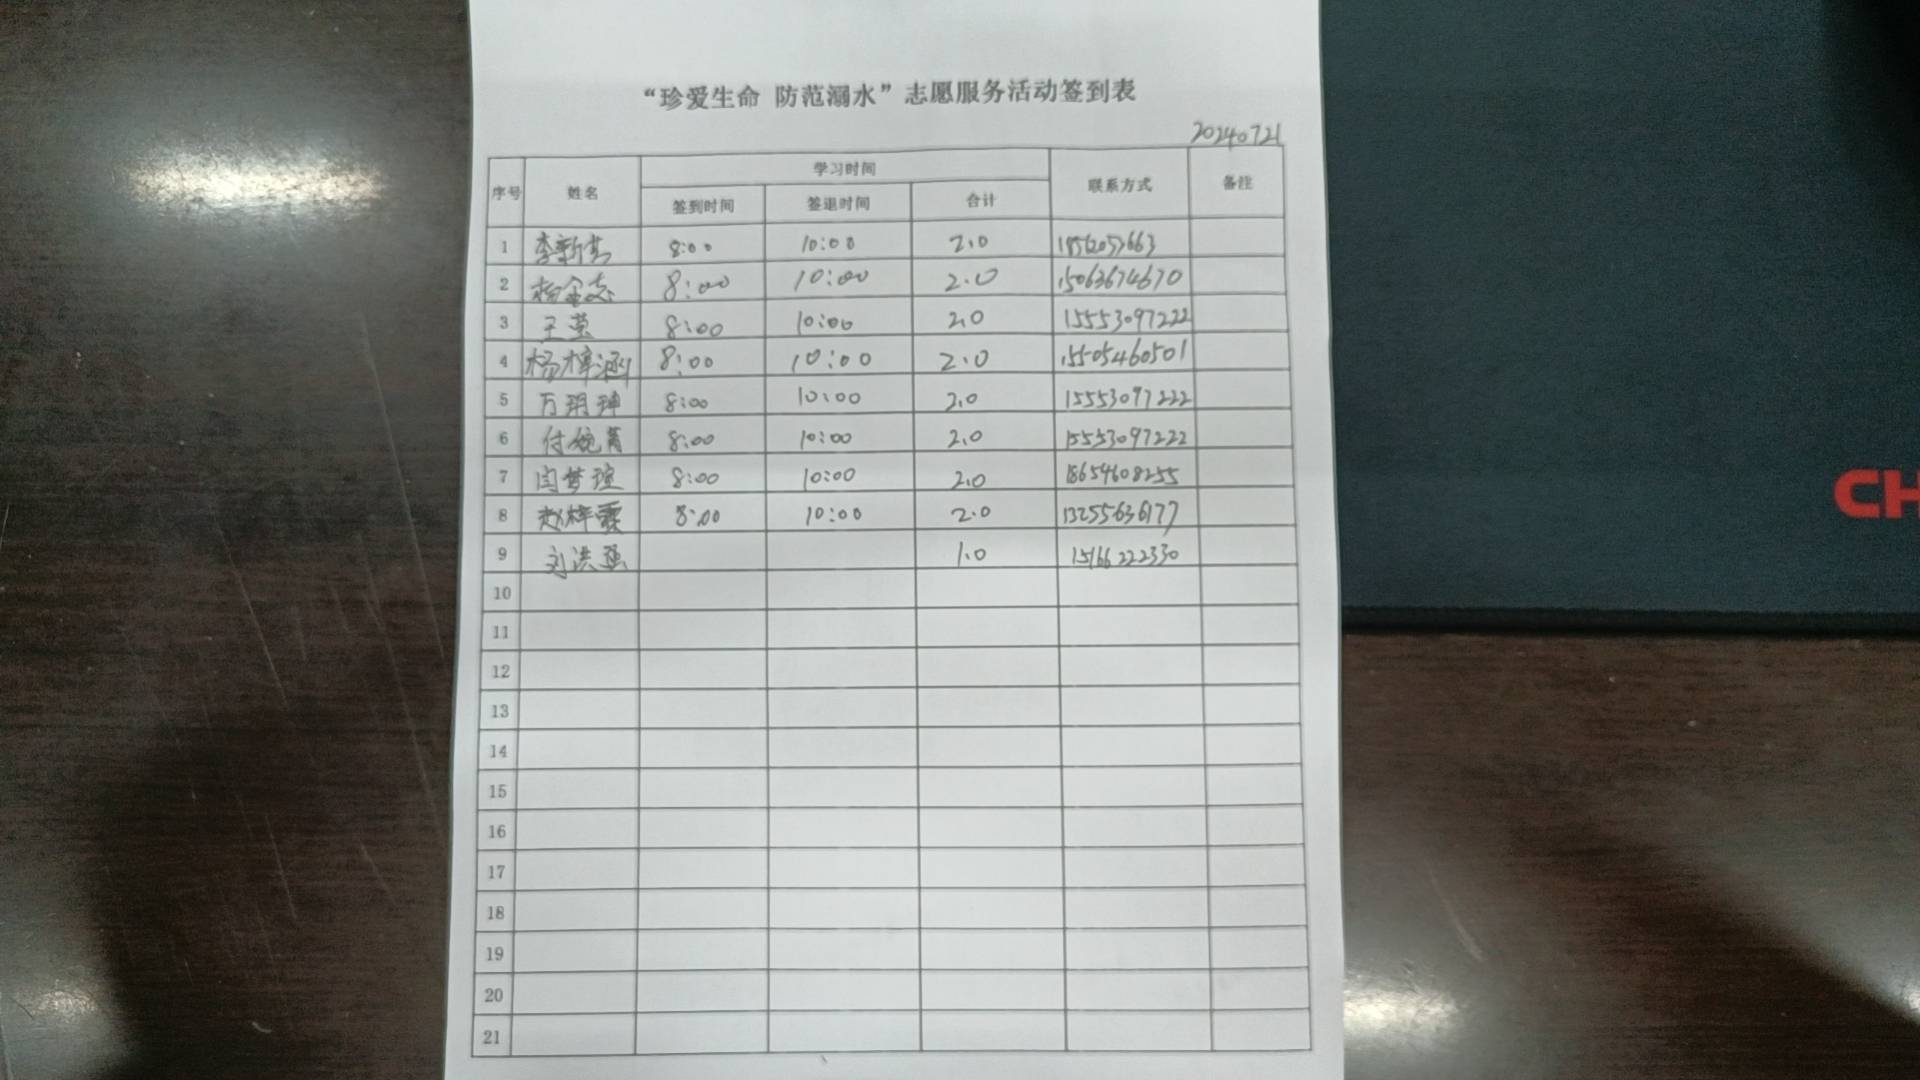 “珍爱生命 防范溺水”志愿服务活动签到表
20240721
序号 姓名 学习时间 联系方式 备注
签到时间 签退时间 合计
1 李新 8:00 10:00 2.0
2 杨金志 8:00 10:00 2.0 15063674670
3 王莹 8:00 10:00 2.0 15553097222
4 杨梓涵 8:00 10:00 2.0 15505460501
5 万玥珅 8:00 10:00 2.0 15553097222
6 付婉菁 8:00 10:00 2.0 15553097222
7 闫梦瑄 8:00 10:00 2.0 18654608255
8 赵梓霖 8:00 10:00 2.0 13255636177
9 刘洪强 1.0 15166222330
10
11
12
13
14
15
16
17
18
19
20
21
CH